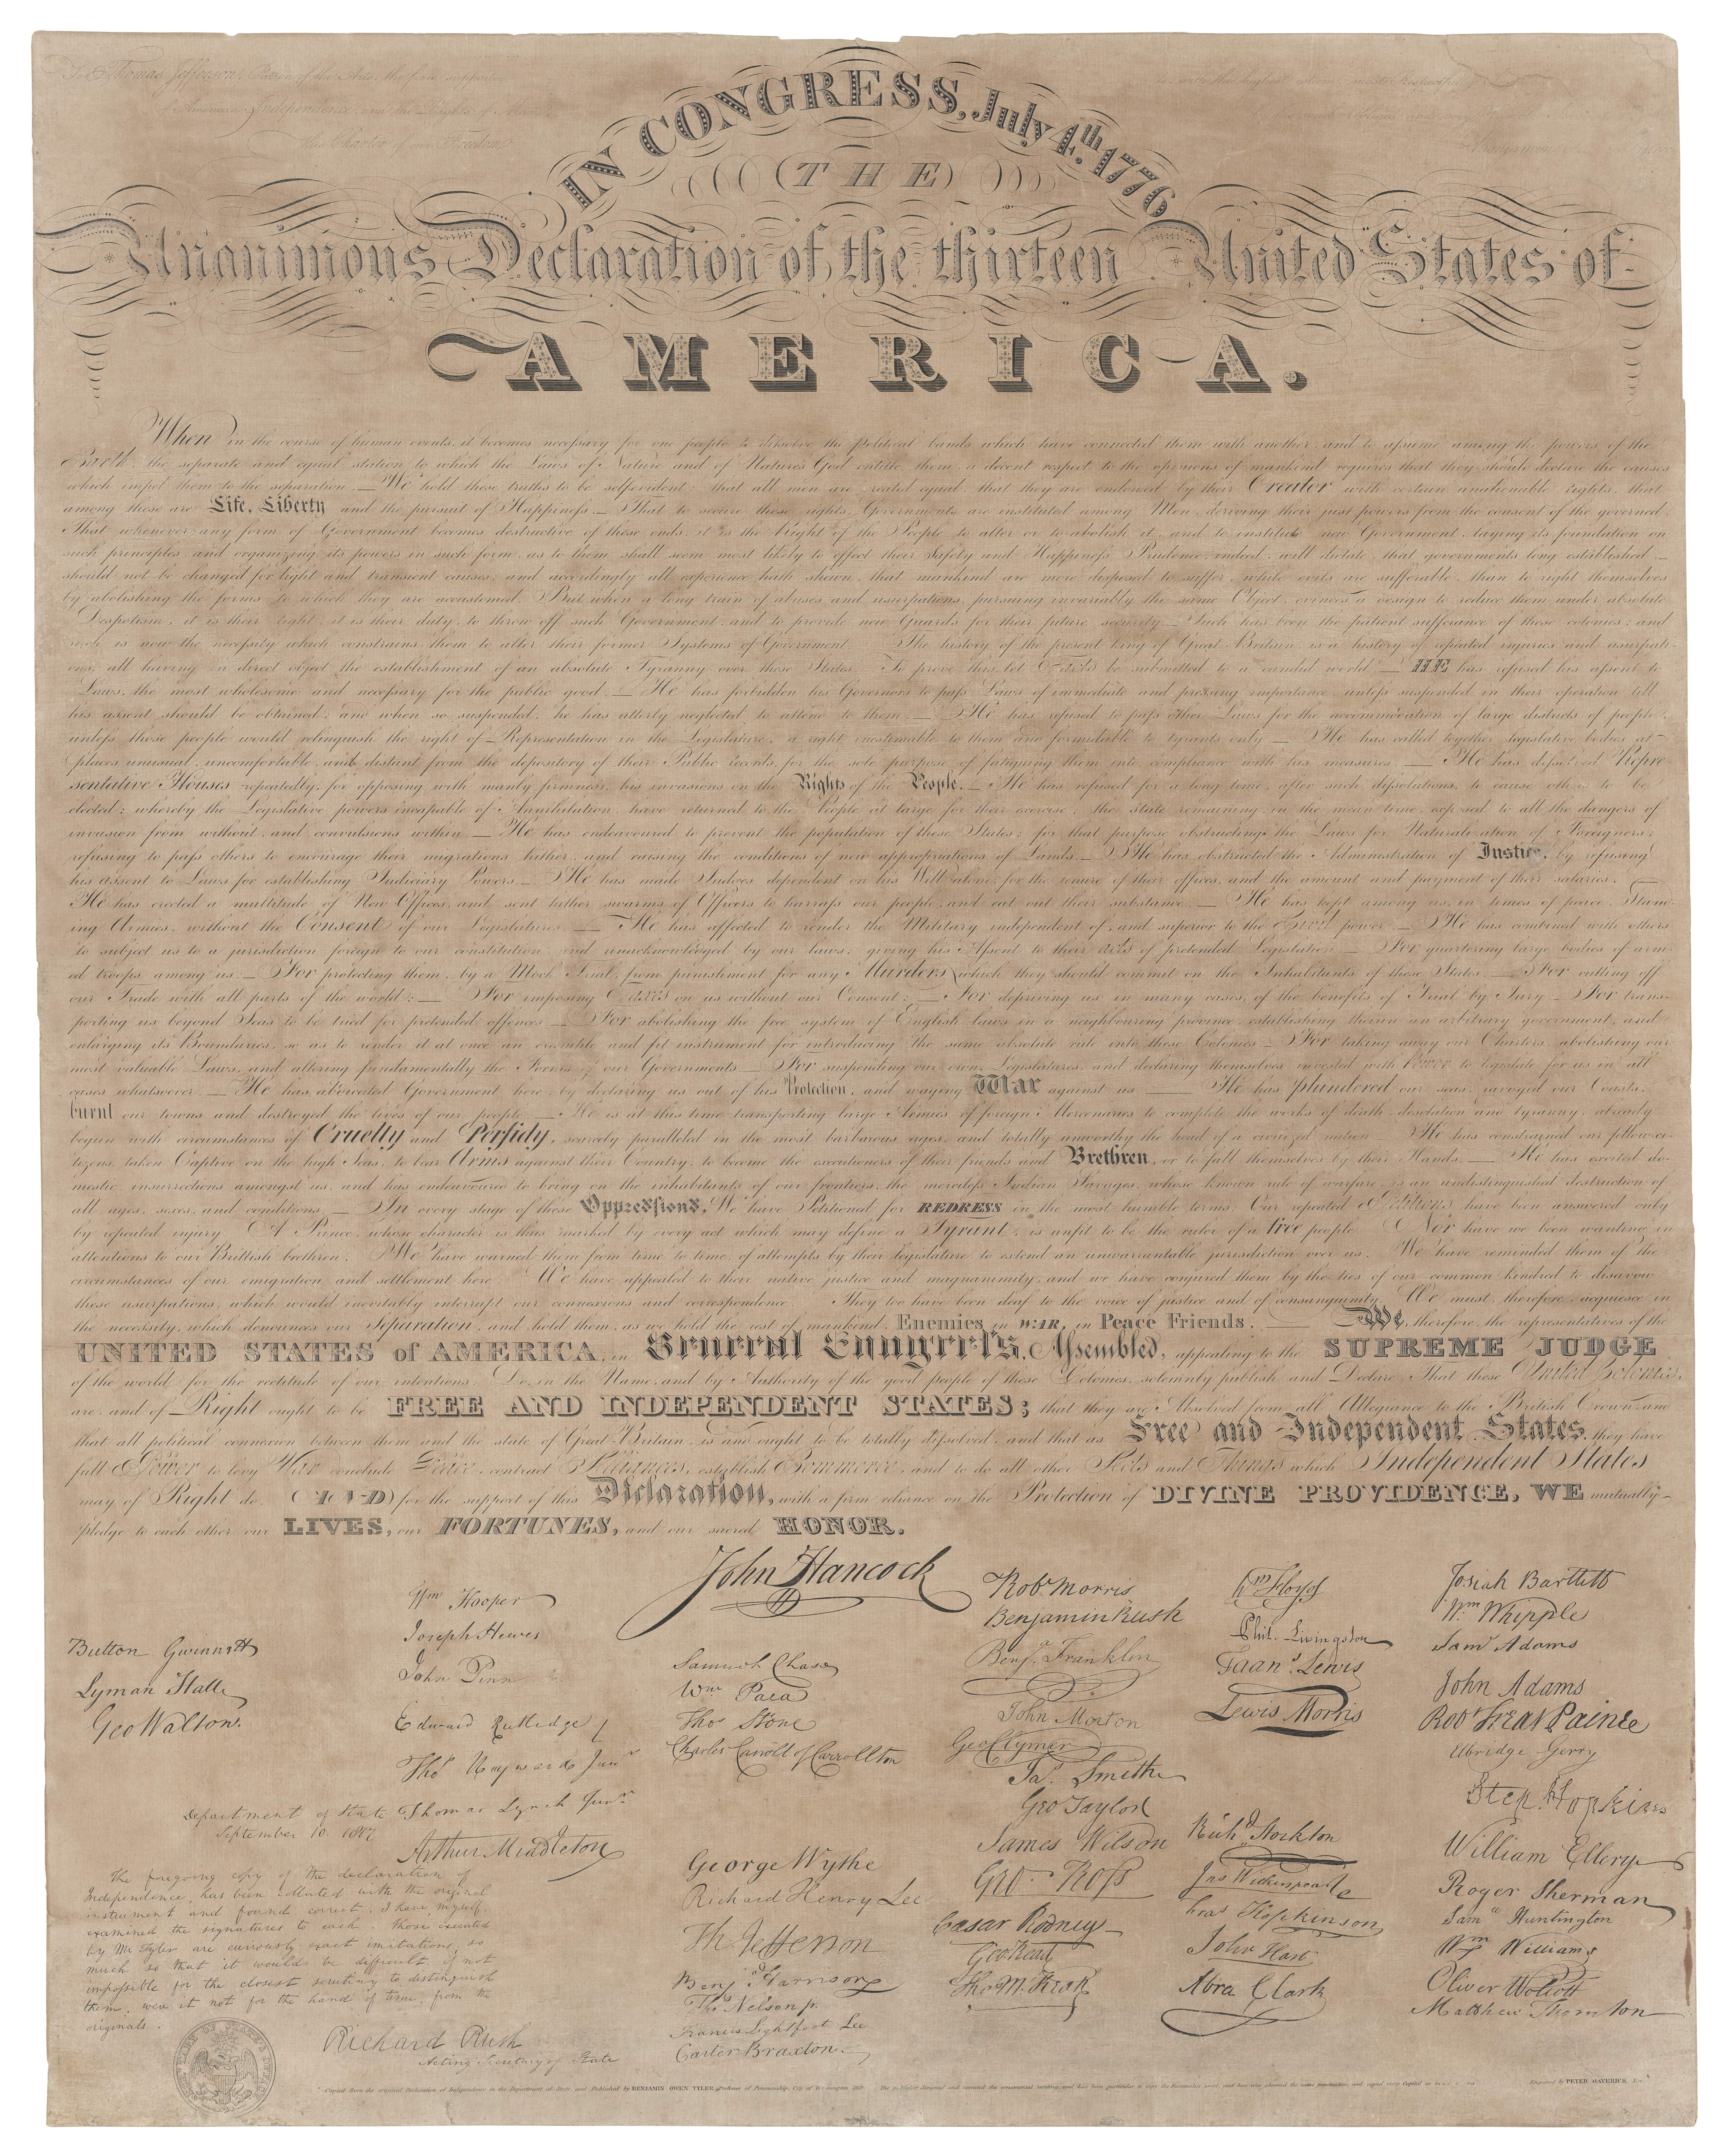 To Thomas Jefferson, Patron of the Arts, the firm supporter
of American Independence, and the Rights of Man,
the Charter of our Freedom
IN CONGRESS, July 4th. 1776
THE
Unanimous Declaration of the thirteen United States of
AMERICA.
When in the course of human events, it becomes necessary for one people to dissolve the political bands which have connected them with another, and to assume among the powers of the
Earth, the separate and equal station to which the Laws of Nature and of Nature's God entitle them, a decent respect to the opinions of mankind requires that they should declare the causes
which impel them to the separation. — We hold these truths to be self evident; that all men are created equal, that they are endowed, by their Creator with certain unalienable rights, that
among these are Life, Liberty and the pursuit of Happiness. — That to secure these rights, Governments are instituted among Men, deriving their just powers from the consent of the governed.
That whenever any form of Government becomes destructive of these ends, it is the Right of the People to alter or to abolish it, and to institute new Government, laying its foundation on
such principles and organizing its powers in such form, as to them shall seem most likely to effect their Safety and Happiness. Prudence, indeed, will dictate, that governments long established —
should not be changed for light and transient causes; and accordingly all experience hath shewn, that mankind are more disposed to suffer, while evils are sufferable, than to right themselves
by abolishing the forms to which they are accustomed. But when a long train of abuses and usurpations, pursuing invariably the same Object, evinces a design to reduce them under absolute
Despotism, it is their right, it is their duty, to throw off such Government, and to provide new Guards for their future security. — Such has been the patient sufferance of these colonies; and
such is now the necessity which constrains them to alter their former Systems of Government. The history of the present king of Great Britain, is a history of repeated injuries and usurpati-
ons, all having in direct object the establishment of an absolute Tyranny over these States. To prove this, let Facts be submitted to a candid world. — HE has refused his assent to
Laws, the most wholesome and necessary for the public good. — He has forbidden his Governors to pass Laws of immediate and pressing importance, unless suspended in their operation till
his assent should be obtained; and when so suspended, he has utterly neglected to attend to them. — He has refused to pass other Laws for the accommodation of large districts of people,
unless those people would relinquish the right of Representation in the Legislature, a right inestimable to them and formidable to tyrants only. — He has called together legislative bodies at
places unusual, uncomfortable, and distant from the depository of their Public records, for the sole purpose of fatiguing them into compliance with his measures. — He has dissolved Repre-
sentative Houses repeatedly, for opposing with manly firmness, his invasions on the Rights of the People. — He has refused for a long time, after such dissolutions, to cause others to be
elected; whereby the Legislative powers incapable of Annihilation, have returned to the People at large for their exercise; the State remaining in the mean time, exposed to all the dangers of
invasion from without, and convulsions within. — He has endeavoured to prevent the population of these States; for that purpose obstructing the Laws for Naturalization of Foreigners;
refusing to pass others to encourage their migrations hither, and raising the conditions of new appropriations of Lands. — He has obstructed the Administration of Justice, by refusing
his assent to Laws for establishing Judiciary Powers. — He has made Judges dependent on his Will alone, for the tenure of their offices, and the amount and payment of their salaries.
He has erected a multitude of New Offices, and sent hither swarms of Officers to harrass our people, and eat out their substance. — He has kept among us, in times of peace, Stand-
ing Armies, without the Consent of our Legislatures. — He has affected to render the Military independent of, and superior to the Civil power. — He has combined with others
to subject us to a jurisdiction foreign to our constitution, and unacknowledged by our laws; giving his Assent to their acts of pretended Legislation: — For quartering large bodies of arm-
ed troops among us: — For protecting them, by a Mock Trial, from punishment for any Murders, which they should commit on the Inhabitants of these States: — For cutting off
our Trade with all parts of the world: — For imposing Taxes on us without our Consent: — For depriving us, in many cases, of the benefits of Trial by Jury: — For trans-
porting us beyond Seas to be tried for pretended offences: — For abolishing the free system of English laws in a neighbouring province, establishing therein an arbitrary government, and
enlarging its Boundaries, so as to render it at once an example and fit instrument for introducing the same absolute rule into these Colonies: — For taking away our Charters, abolishing our
most valuable Laws, and altering fundamentally the Forms of our Governments: — For suspending our own Legislatures, and declaring themselves invested with Power to legislate for us in all
cases whatsoever. — He has abdicated Government here, by declaring us out of his Protection, and waging War against us. — He has plundered our seas, ravaged our Coasts,
burnt our towns and destroyed the lives of our people. — He is at this time transporting large Armies of foreign Mercenaries to complete the works of death, desolation and tyranny, already
begun with circumstances of Cruelty and Perfidy, scarcely paralleled in the most barbarous ages, and totally unworthy the head of a civilized nation. He has constrained our fellow-ci-
tizens, taken Captive on the high Seas, to bear Arms against their Country, to become the executioners of their friends and Brethren, or to fall themselves by their Hands. — He has excited do-
mestic insurrections amongst us, and has endeavoured to bring on the inhabitants of our frontiers, the merciless Indian Savages, whose known rule of warfare, is an undistinguished destruction of
all ages, sexes, and conditions. — In every stage of these Oppressions, We have Petitioned for REDRESS in the most humble terms: Our repeated Petitions, have been answered only
by repeated injury. A Prince, whose character is thus marked by every act which may define a Tyrant, is unfit to be the ruler of a free people. Nor have we been wanting in
attentions to our Brittish brethren. We have warned them from time to time, of attempts by their legislature to extend an unwarrantable jurisdiction over us. We have reminded them of the
circumstances of our emigration and settlement here. We have appealed to their native justice and magnanimity, and we have conjured them by the ties of our common kindred to disavow
these usurpations, which would inevitably interrupt our connexions and correspondence. They too have been deaf to the voice of justice and of consanguinity. We must, therefore, acquiesce in
the necessity, which denounces our Separation, and hold them, as we hold the rest of mankind, Enemies in WAR, in Peace Friends. — We, therefore, the representatives of the
UNITED STATES of AMERICA, in General Congress, Assembled, appealing to the SUPREME JUDGE
of the world for the rectitude of our intentions, Do, in the Name, and by Authority of the good people of these Colonies, solemnly publish and Declare, That these United Colonies,
are, and of Right ought to be FREE AND INDEPENDENT STATES; that they are Absolved from all Allegiance to the British Crown, and
that all political connexion between them and the state of Great-Britain, is and ought to be totally dissolved; and that as Free and Independent States, they have
full Power to levy War, conclude Peace, contract Alliances, establish Commerce, and to do all other Acts and Things which Independent States
may of Right do. AND for the support of this Declaration, with a firm reliance on the Protection of DIVINE PROVIDENCE, WE mutually
pledge to each other our LIVES, our FORTUNES, and our sacred HONOR.
Button Gwinnett
Lyman Hall
Geo Walton.
Wm Hooper
Joseph Hewes
John Penn
Edward Rutledge
Thos Heyward Junr
Thomas Lynch Junr
Arthur Middleton
John Hancock
Samuel Chase
Wm Paca
Thos Stone
Charles Carroll of Carrollton
George Wythe
Richard Henry Lee
Th Jefferson
Benja Harrison
Thos Nelson jr.
Francis Lightfoot Lee
Carter Braxton
Robt Morris
Benjamin Rush
Benja. Franklin
John Morton
Geo Clymer
Jas. Smith
Geo Taylor
James Wilson
Geo. Ross
Caesar Rodney
Geo Read
Tho M:Kean
Wm Floyd
Phil. Livingston
Frans. Lewis
Lewis Morris
Richd. Stockton
Jno Witherspoon
Fras Hopkinson
John Hart
Abra Clark
Josiah Bartlett
Wm Whipple
Saml Adams
John Adams
Robt Treat Paine
Elbridge Gerry
Step. Hopkins
William Ellery
Roger Sherman
Saml Huntington
Wm Williams
Oliver Wolcott
Matthew Thornton
Department of State
September 10. 1817
The foregoing copy of the declaration of
Independence, has been collated with the original
instrument and found correct. I have myself,
examined the signatures to each. Those executed
by Mr. Tyler, are curiously exact imitations, so
much so that it would be difficult, if not
impossible for the closest scrutiny to distinguish
them, were it not for the hand of time, from the
originals.
Richard Rush
Acting Secretary of State
Copied from the original Declaration of Independence in the Department of State and Published by BENJAMIN OWEN TYLER, Professor of Penmanship, City of Washington, 1818.
Engraved by PETER MAVERICK